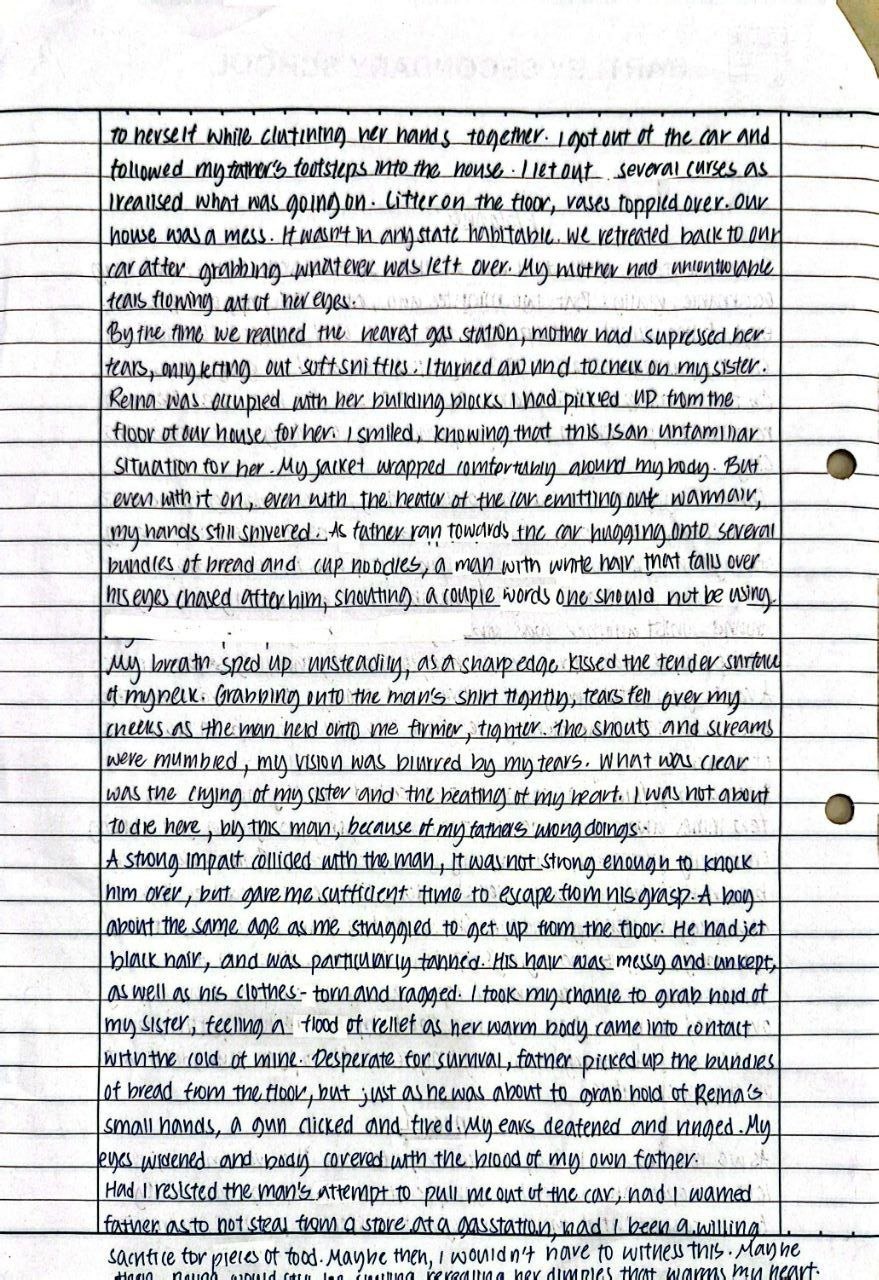 to herself while clutching her hands together. I got out of the car and
followed my father's footsteps into the house. I let out several curses as
I realised what was going on. Litter on the floor, vases toppled over. Our
house was a mess. It wasn't in any state habitable. We retreated back to our
car after grabbing whatever was left over. My mother had uncontrolable
tears flowing out of her eyes.
By the time we reached the nearest gas station, mother had supressed her
tears, only letting out soft sniffles. I turned around to check on my sister.
Reina was occupied with her building blocks I had picked up from the
floor of our house for her. I smiled, knowing that this is an unfamiliar
situation for her. My jacket wrapped comfortably around my body. But
even with it on, even with the heator of the car emitting out warm air,
my hands still shivered. As father ran towards the car hugging onto several
bundles of bread and cup noodles, a man with white hair that falls over
his eyes chased after him, shouting a couple words one should not be using.
My breath sped up unsteadily, as a sharp edge kissed the tender surface
of my neck. Grabbing onto the man's shirt tightly, tears fell over my
cheeks as the man held onto me firmer, tighter. The shouts and screams
were mumbled, my vision was blurred by my tears. What was clear
was the crying of my sister and the beating of my heart. I was not about
to die here, by this man, because of my fathers wrong doings.
A strong impact collided with the man, it was not strong enough to knock
him over, but gave me sufficient time to escape from his grasp. A boy
about the same age as me struggled to get up from the floor. He had jet
black hair, and was particularly tanned. His hair was messy and unkept,
as well as his clothes - torn and ragged. I took my chance to grab hold of
my sister, feeling a flood of relief as her warm body came into contact
with the cold of mine. Desperate for survival, father picked up the bundles
of bread from the floor, but just as he was about to grab hold of Reina's
small hands, a gun clicked and fired. My ears deafened and ringed. My
eyes widened and body covered with the blood of my own father.
Had I resisted the man's attempt to pull me out of the car, had I warned
father as to not steal from a store at a gas station, had I been a willing
sacrifice for pieces of food. Maybe then, I wouldn't have to witness this. Maybe
then, Reina would still be smiling revealing her dimples that warms my heart.